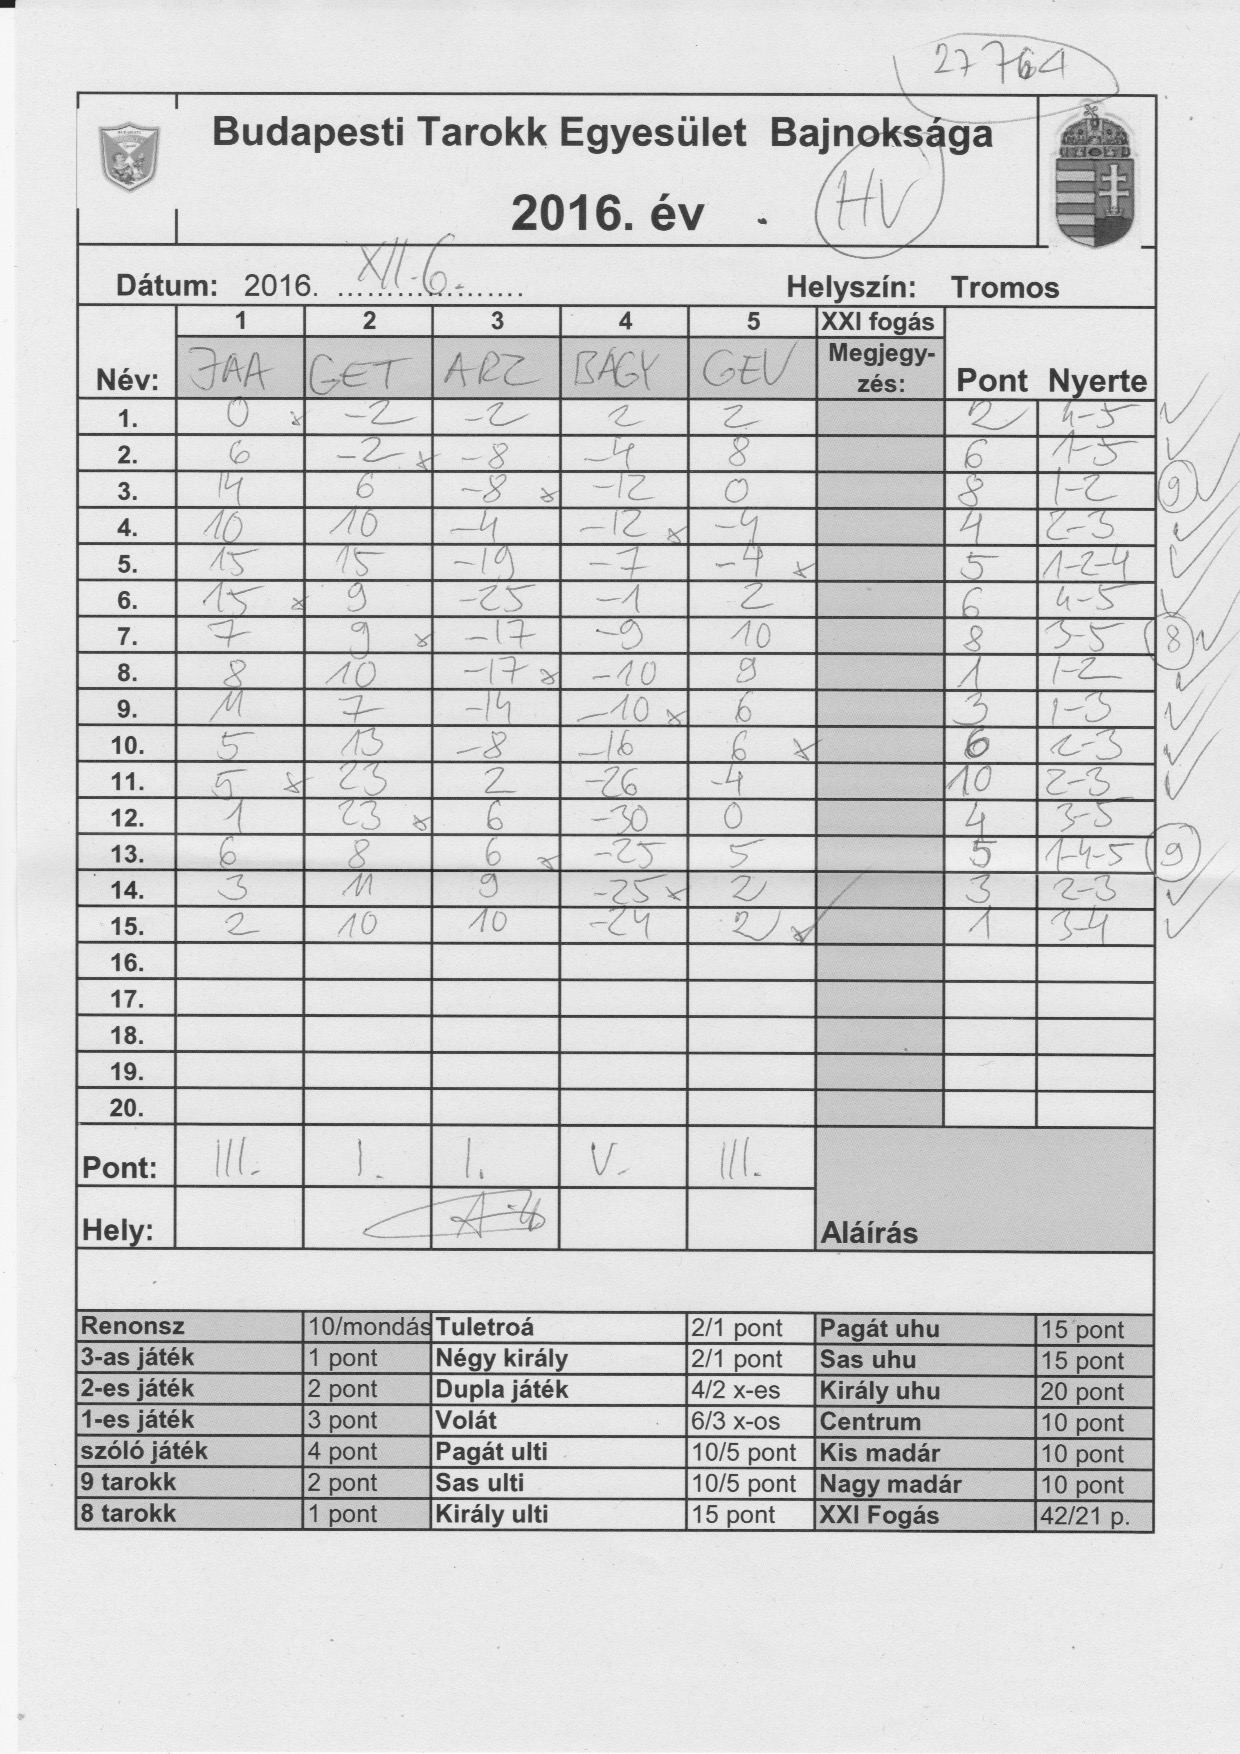 27764
Budapesti Tarokk Egyesület Bajnoksága
2016. év
HV
Dátum: 2016. XII.6. Helyszín: Tromos
1 2 3 4 5 XXI fogás
Név: JAA GET ARZ BAGY GEV Megjegy-zés: Pont Nyerte
1. 0 x -2 -2 2 2 2 4-5
2. 6 -2 x -8 -4 8 6 1-5
3. 14 6 -8 x -12 0 8 1-2 9
4. 10 10 -4 -12 x -4 4 2-3
5. 15 15 -19 -7 -4 x 5 1-2-4
6. 15 x 9 -25 -1 2 6 4-5
7. 7 9 x -17 -9 10 8 3-5 8
8. 8 10 -17 x -10 9 1 1-2
9. 11 7 -14 -10 x 6 3 1-3
10. 5 13 -8 -16 6 x 6 2-3
11. 5 x 23 2 -26 -4 10 2-3
12. 1 23 x 6 -30 0 4 3-5
13. 6 8 6 x -25 5 5 1-4-5 9
14. 3 11 9 -25 x 2 3 2-3
15. 2 10 10 -24 2 x 1 3-4
16.
17.
18.
19.
20.
Pont: III. I. I. V. III.
Hely: Aláírás
Renonsz 10/mondás Tuletroá 2/1 pont Pagát uhu 15 pont
3-as játék 1 pont Négy király 2/1 pont Sas uhu 15 pont
2-es játék 2 pont Dupla játék 4/2 x-es Király uhu 20 pont
1-es játék 3 pont Volát 6/3 x-os Centrum 10 pont
szóló játék 4 pont Pagát ulti 10/5 pont Kis madár 10 pont
9 tarokk 2 pont Sas ulti 10/5 pont Nagy madár 10 pont
8 tarokk 1 pont Király ulti 15 pont XXI Fogás 42/21 p.